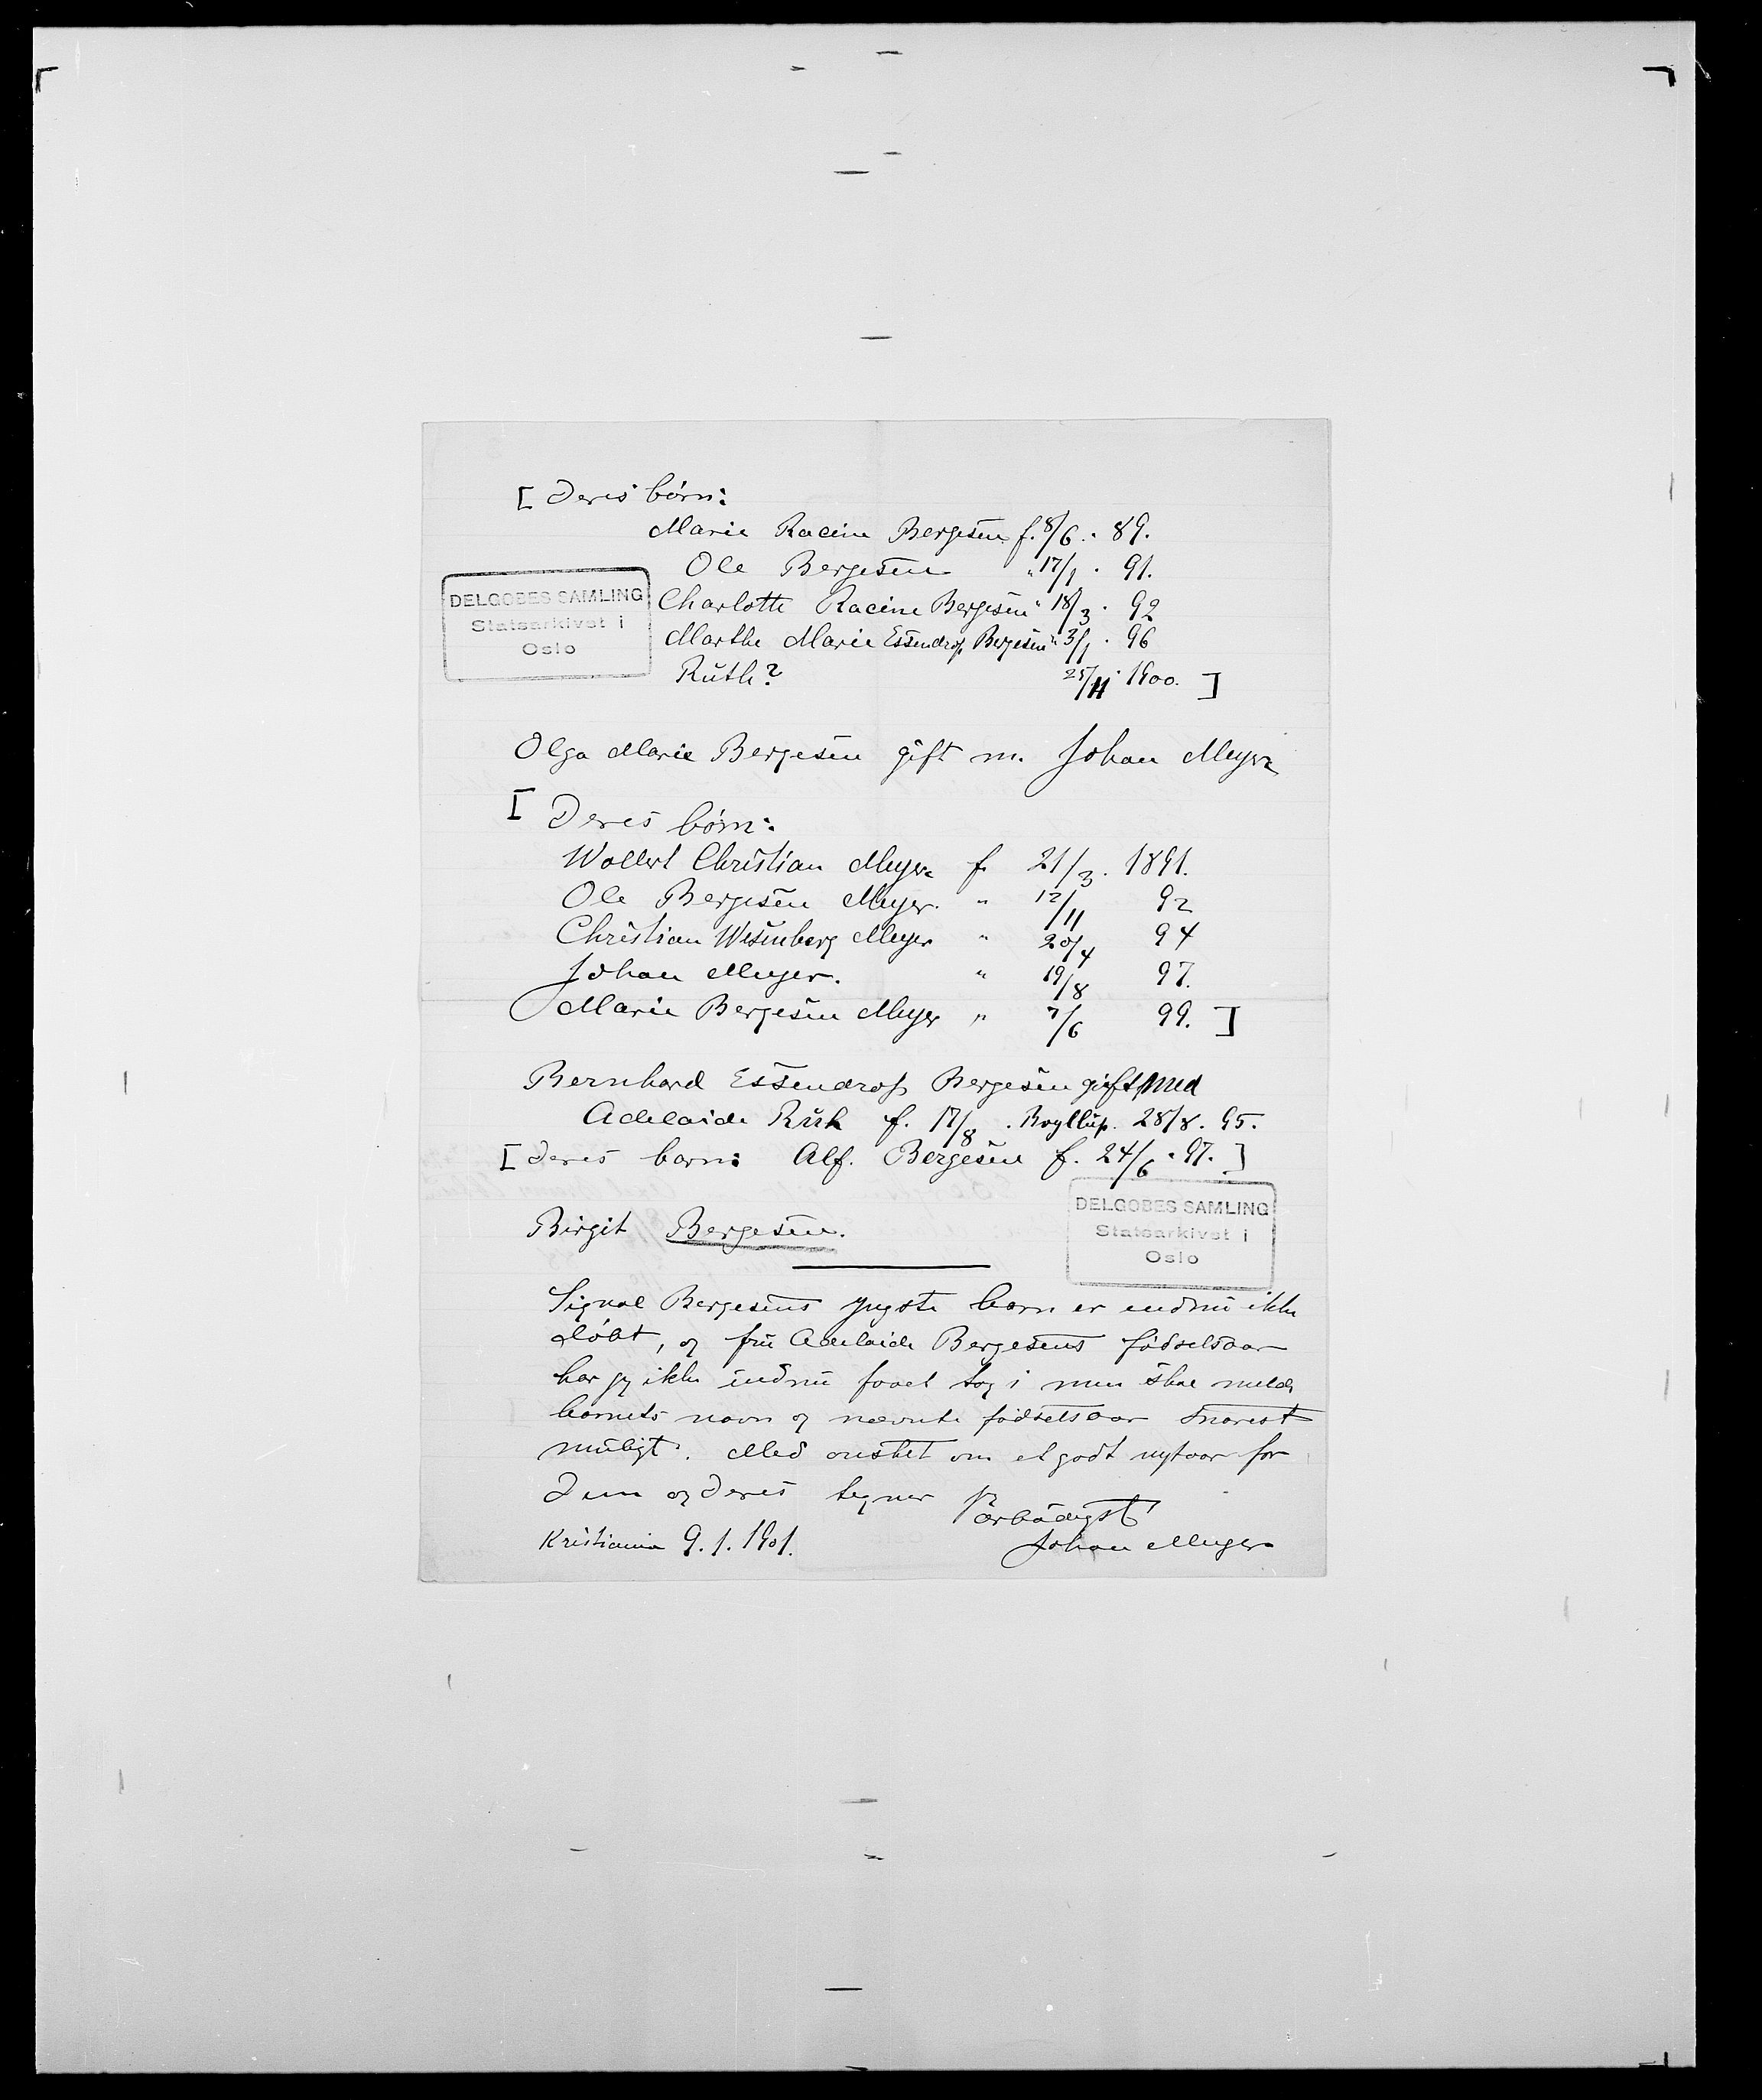 [ Deres børn:
Marie Racine Bergesen f. 8/6 . 89.
Ole Bergesen " 17/1 . 91.
Charlotte Racine Bergesen " 18/3 . 92
Marthe Marie Essendrop Bergesen " 3/1 . 96
Ruth? 25/11 . 1900. ]
DELGOBES SAMLING
Statsarkivet i
Oslo
Olga Marie Bergesen gift m. Johan Meyer
[ Deres børn:
Wollert Christian Meyer f. 21/3 . 1891.
Ole Bergesen Meyer. " 12/11 92
Christian Wesenberg Meyer " 20/4 94
Johan Meyer. " 19/8 97.
Marie Bergesen Meyer " 7/6 99. ]
Bernhard Essendrop Bergesen gift med
Adelaide f. 17/8 . Bryllup. 28/8 . 95.
[ Deres barn: Alf. Bergesen f. 24/6 . 97. ]
Birgit Bergesen.
DELGOBES SAMLING
Statsarkivet i
Oslo
Sigval Bergesens yngste barn er endnu ikke
døbt, og fru Adelaide Bergesens fødselsaar
har jeg ikke endnu faaet tag i men skal melde
barnets navn og nævnte fødselsaar snarest
muligt. Med ønsket om et godt nytaar for
Dem og Deres tegner jeg
ærbødigst
Kristiania 9.1.1901. Johan Meyer